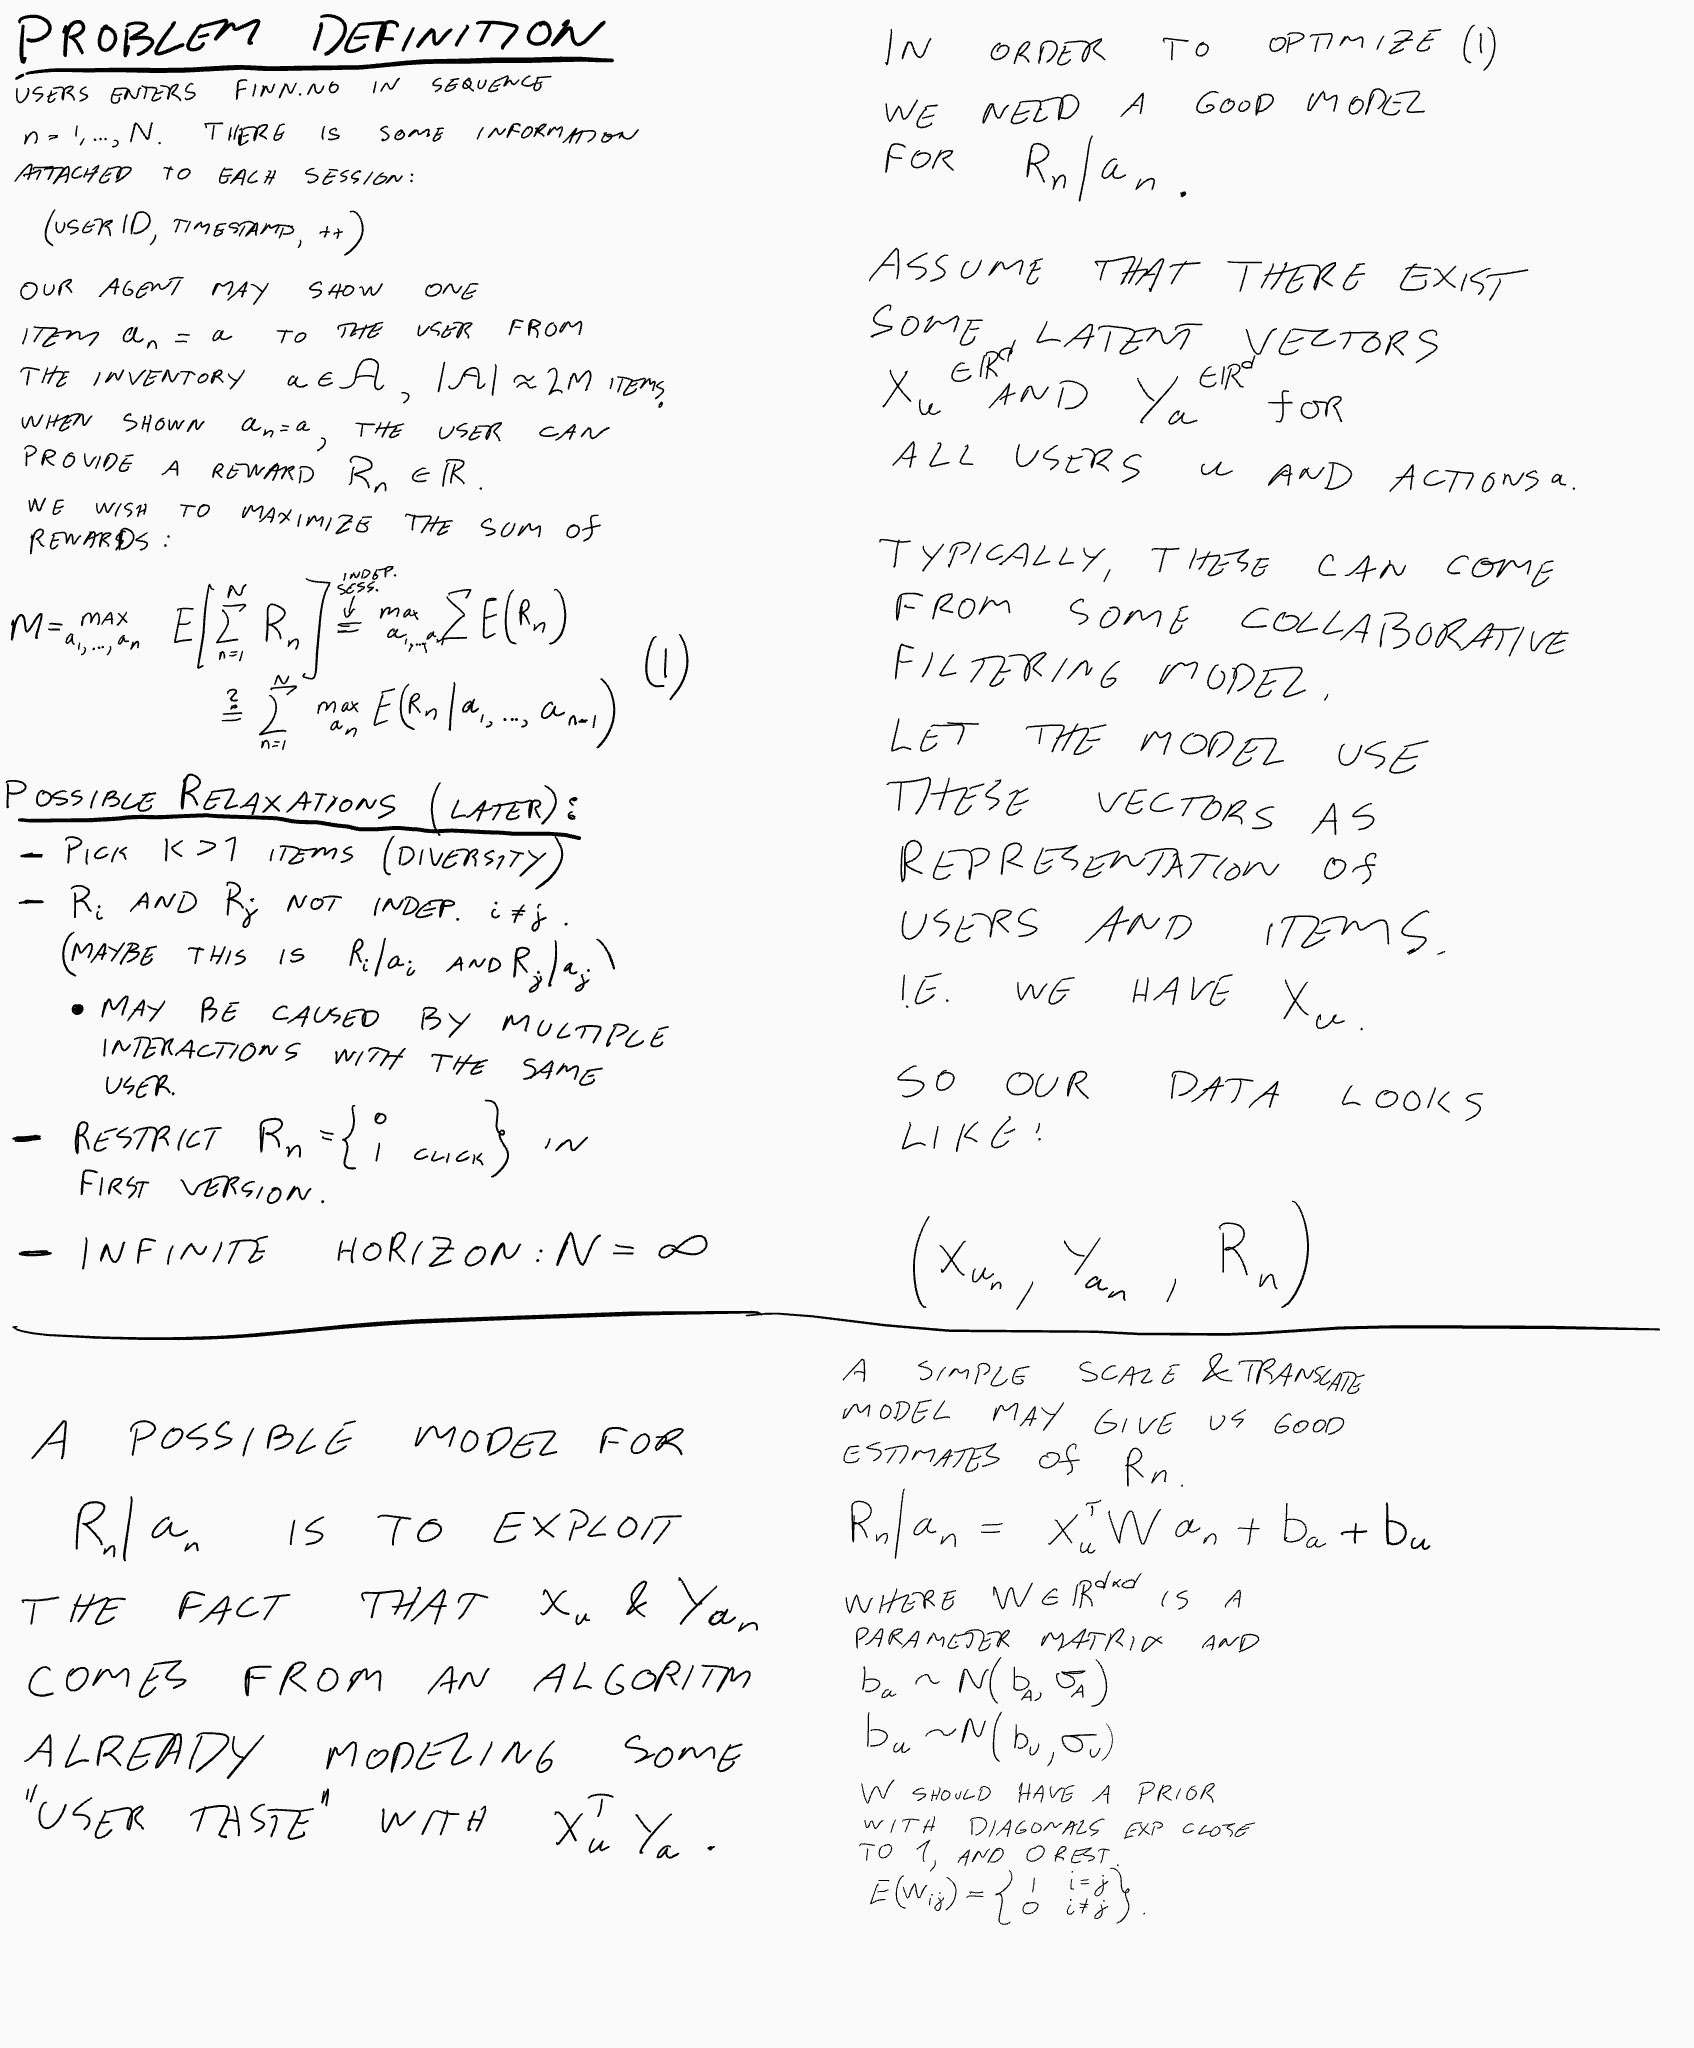 PROBLEM DEFINITION
USERS ENTERS FINN.NO IN SEQUENCE
n = 1, ..., N. THERE IS SOME INFORMATION
ATTACHED TO EACH SESSION:
(USER ID, TIMESTAMP, ++)
OUR AGENT MAY SHOW ONE
ITEM aₙ = a TO THE USER FROM
THE INVENTORY a ∈ 𝒜, |𝒜| ≈ 2M ITEMS.
WHEN SHOWN aₙ = a, THE USER CAN
PROVIDE A REWARD Rₙ ∈ ℝ.
WE WISH TO MAXIMIZE THE SUM OF
REWARDS:
INDEP.
SESS.
↓
M = max_{a₁,...,aₙ} E[∑_{n=1}^{N} Rₙ] = max_{a₁,...,a} ∑ E(Rₙ)
(1)
≟ ∑_{n=1}^{N} max_{aₙ} E(Rₙ | a₁, ..., a_{n-1})
POSSIBLE RELAXATIONS (LATER):
- PICK K > 1 ITEMS (DIVERSITY)
- Rᵢ AND Rⱼ NOT INDEP. i ≠ j.
(MAYBE THIS IS Rᵢ|aᵢ AND Rⱼ|aⱼ)
• MAY BE CAUSED BY MULTIPLE
INTERACTIONS WITH THE SAME
USER.
- RESTRICT Rₙ = {0
1 CLICK} IN
FIRST VERSION.
- INFINITE HORIZON: N = ∞
IN ORDER TO OPTIMIZE (1)
WE NEED A GOOD MODEL
FOR Rₙ|aₙ.
ASSUME THAT THERE EXIST
SOME LATENT VECTORS
Xᵤ ∈ ℝᵈ AND Yₐ ∈ ℝᵈ FOR
ALL USERS u AND ACTIONS a.
TYPICALLY, THESE CAN COME
FROM SOME COLLABORATIVE
FILTERING MODEL.
LET THE MODEL USE
THESE VECTORS AS
REPRESENTATION OF
USERS AND ITEMS.
I.E. WE HAVE Xᵤ.
SO OUR DATA LOOKS
LIKE:
(X_{uₙ}, Y_{aₙ}, Rₙ)
A POSSIBLE MODEL FOR
Rₙ|aₙ IS TO EXPLOIT
THE FACT THAT Xᵤ & Y_{aₙ}
COMES FROM AN ALGORITM
ALREADY MODELING SOME
"USER TASTE" WITH Xᵤᵀ Yₐ.
A SIMPLE SCALE & TRANSLATE
MODEL MAY GIVE US GOOD
ESTIMATES OF Rₙ.
Rₙ|aₙ = Xᵤᵀ W aₙ + bₐ + bᵤ
WHERE W ∈ ℝ^{d×d} IS A
PARAMETER MATRIX AND
bₐ ~ N(b_A, σ_A)
bᵤ ~ N(b_U, σ_U)
W SHOULD HAVE A PRIOR
WITH DIAGONALS EXP CLOSE
TO 1, AND 0 REST.
E(Wᵢⱼ) = {1 i = j
0 i ≠ j}.